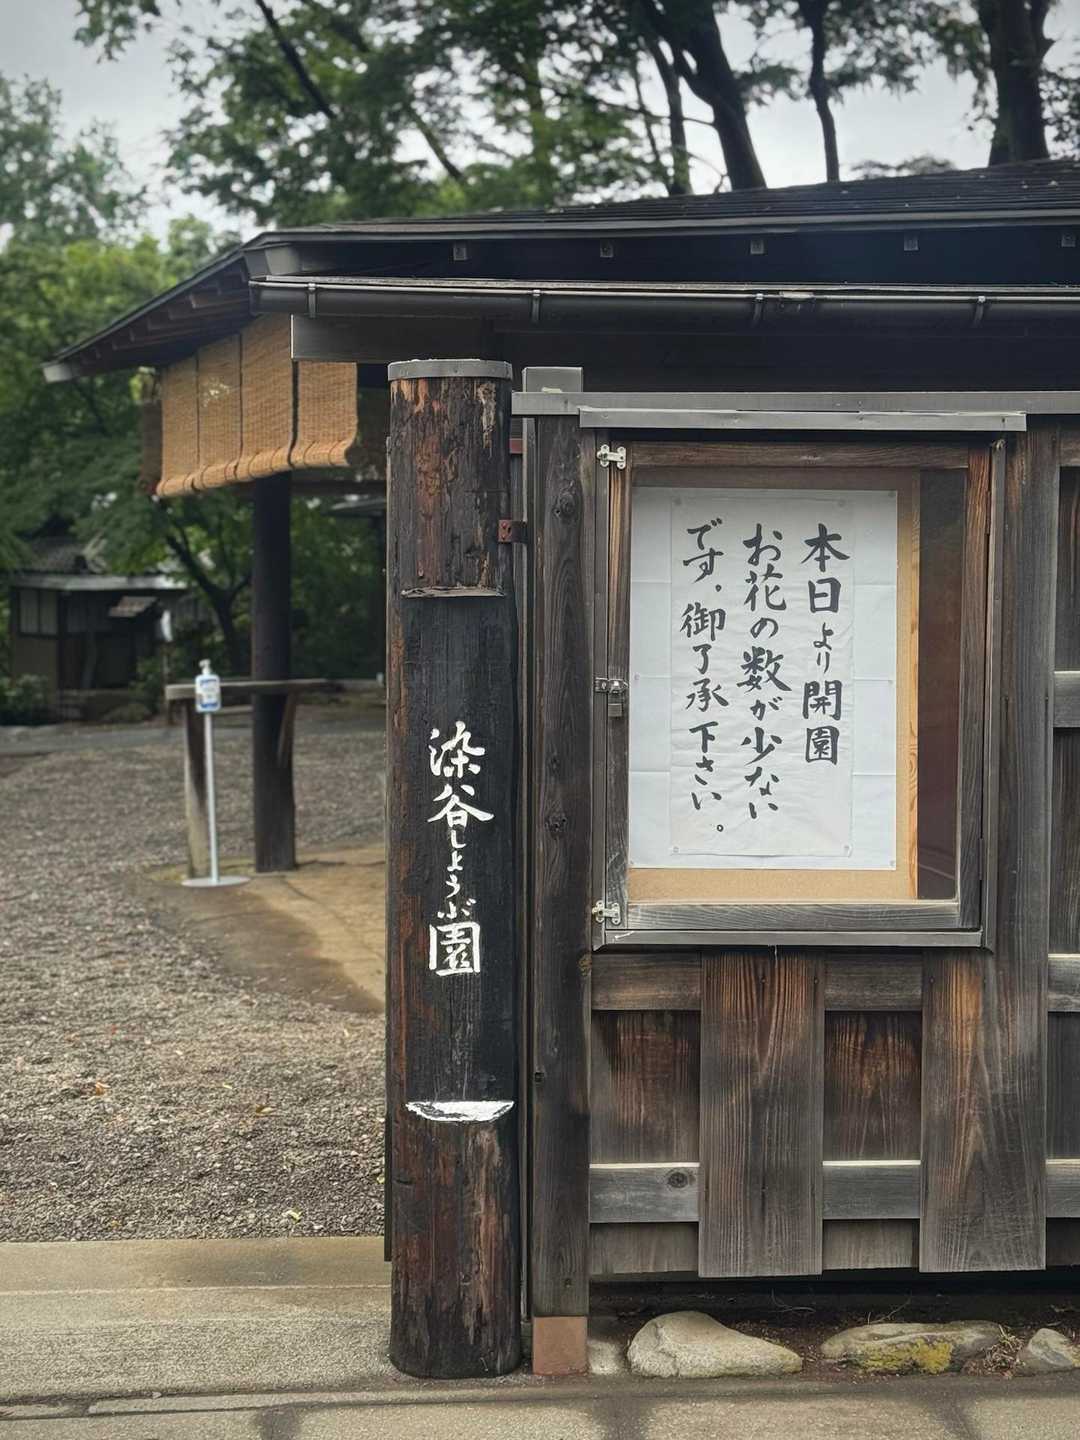 染谷しょうぶ園
本日より開園
お花の数が少ない
です。御了承下さい。